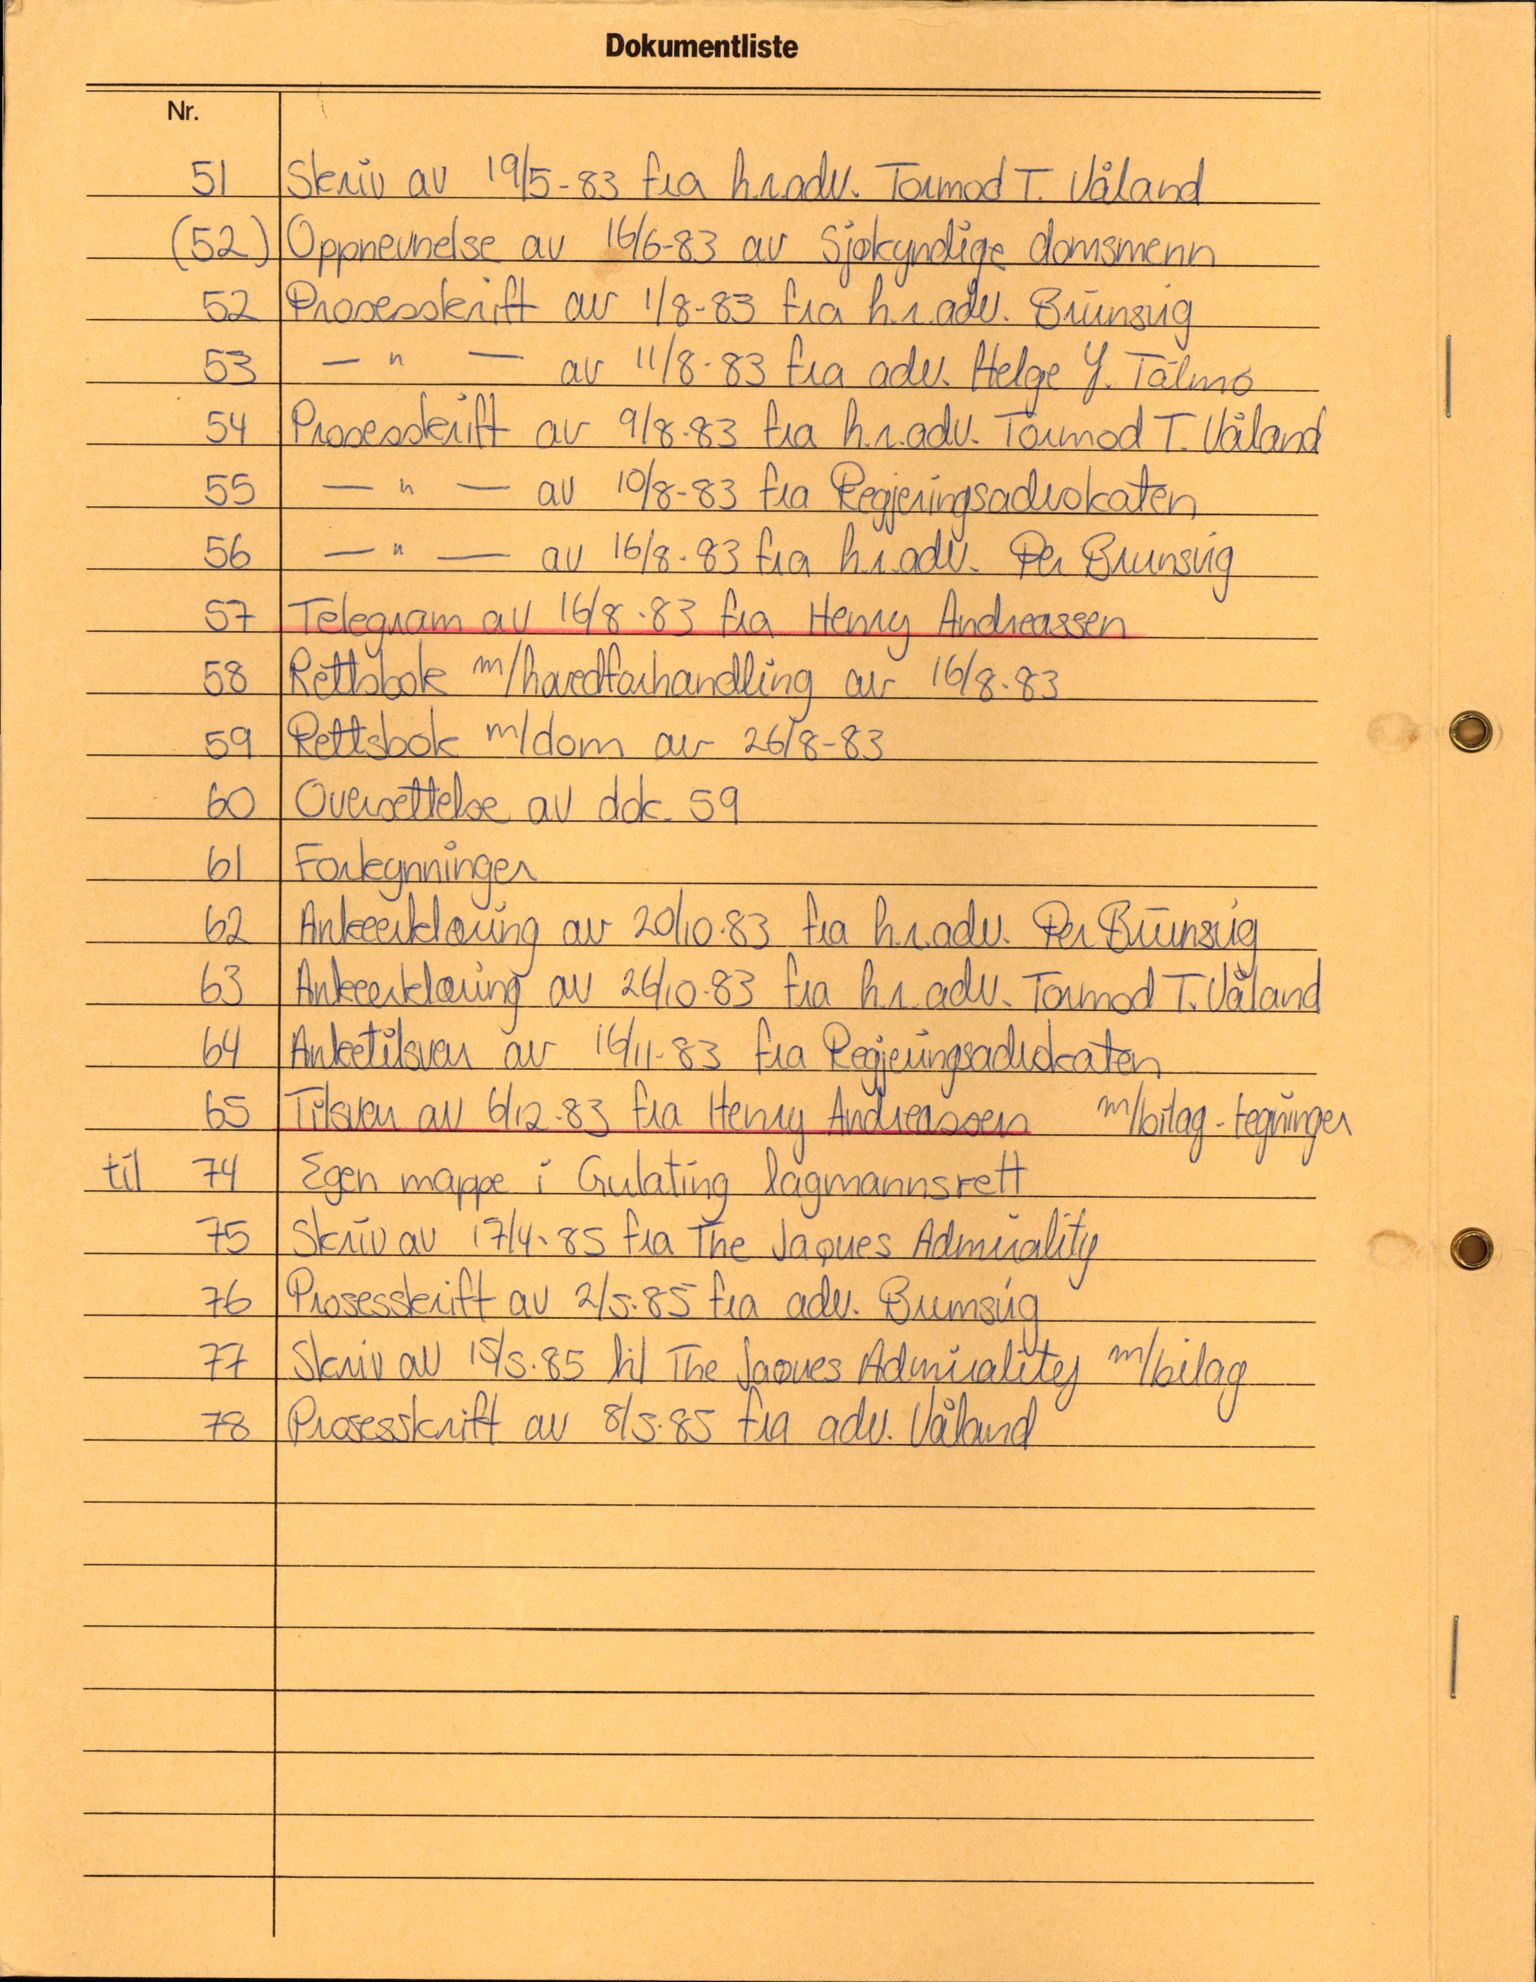 Dokumentliste
Nr.
51 Skriv av 19/5-83 fra h.r.adv. Tormod T. Våland
(52) Oppnevnelse av 16/6-83 av sjøkyndige domsmenn
52 Prosesskrift av 1/8-83 fra h.r.adv. Brunsvig
53 — " — av 11/8-83 fra adv. Helge J. Tälmo
54 Prosesskrift av 9/8-83 fra h.r.adv. Tormod T. Våland
55 — " — av 10/8-83 fra Regjeringsadvokaten
56 — " — av 16/8-83 fra h.r.adv. Per Brunsvig
57 Telegram av 16/8-83 fra Henry Andreassen
58 Rettsbok m/hovedforhandling av 16/8-83
59 Rettsbok m/dom av 26/8-83
60 Oversettelse av dok. 59
61 Forkynninger
62 Ankeerklæring av 20/10-83 fra h.r.adv. Per Brunsvig
63 Ankeerklæring av 26/10-83 fra h.r.adv. Tormod T. Våland
64 Anketilsvar av 16/11-83 fra Regjeringsadvokaten
65 Tilsvar av 6/12-83 fra Henry Andreassen m/bilag - tegninger
til 74 Egen mappe i Gulating lagmannsrett
75 Skriv av 17/4-85 fra The Jaques Admirality
76 Prosesskrift av 2/5-85 fra adv. Brunsvig
77 Skriv av 15/5-85 til The Jaques Admirality m/bilag
78 Prosesskrift av 8/5-85 fra adv. Våland